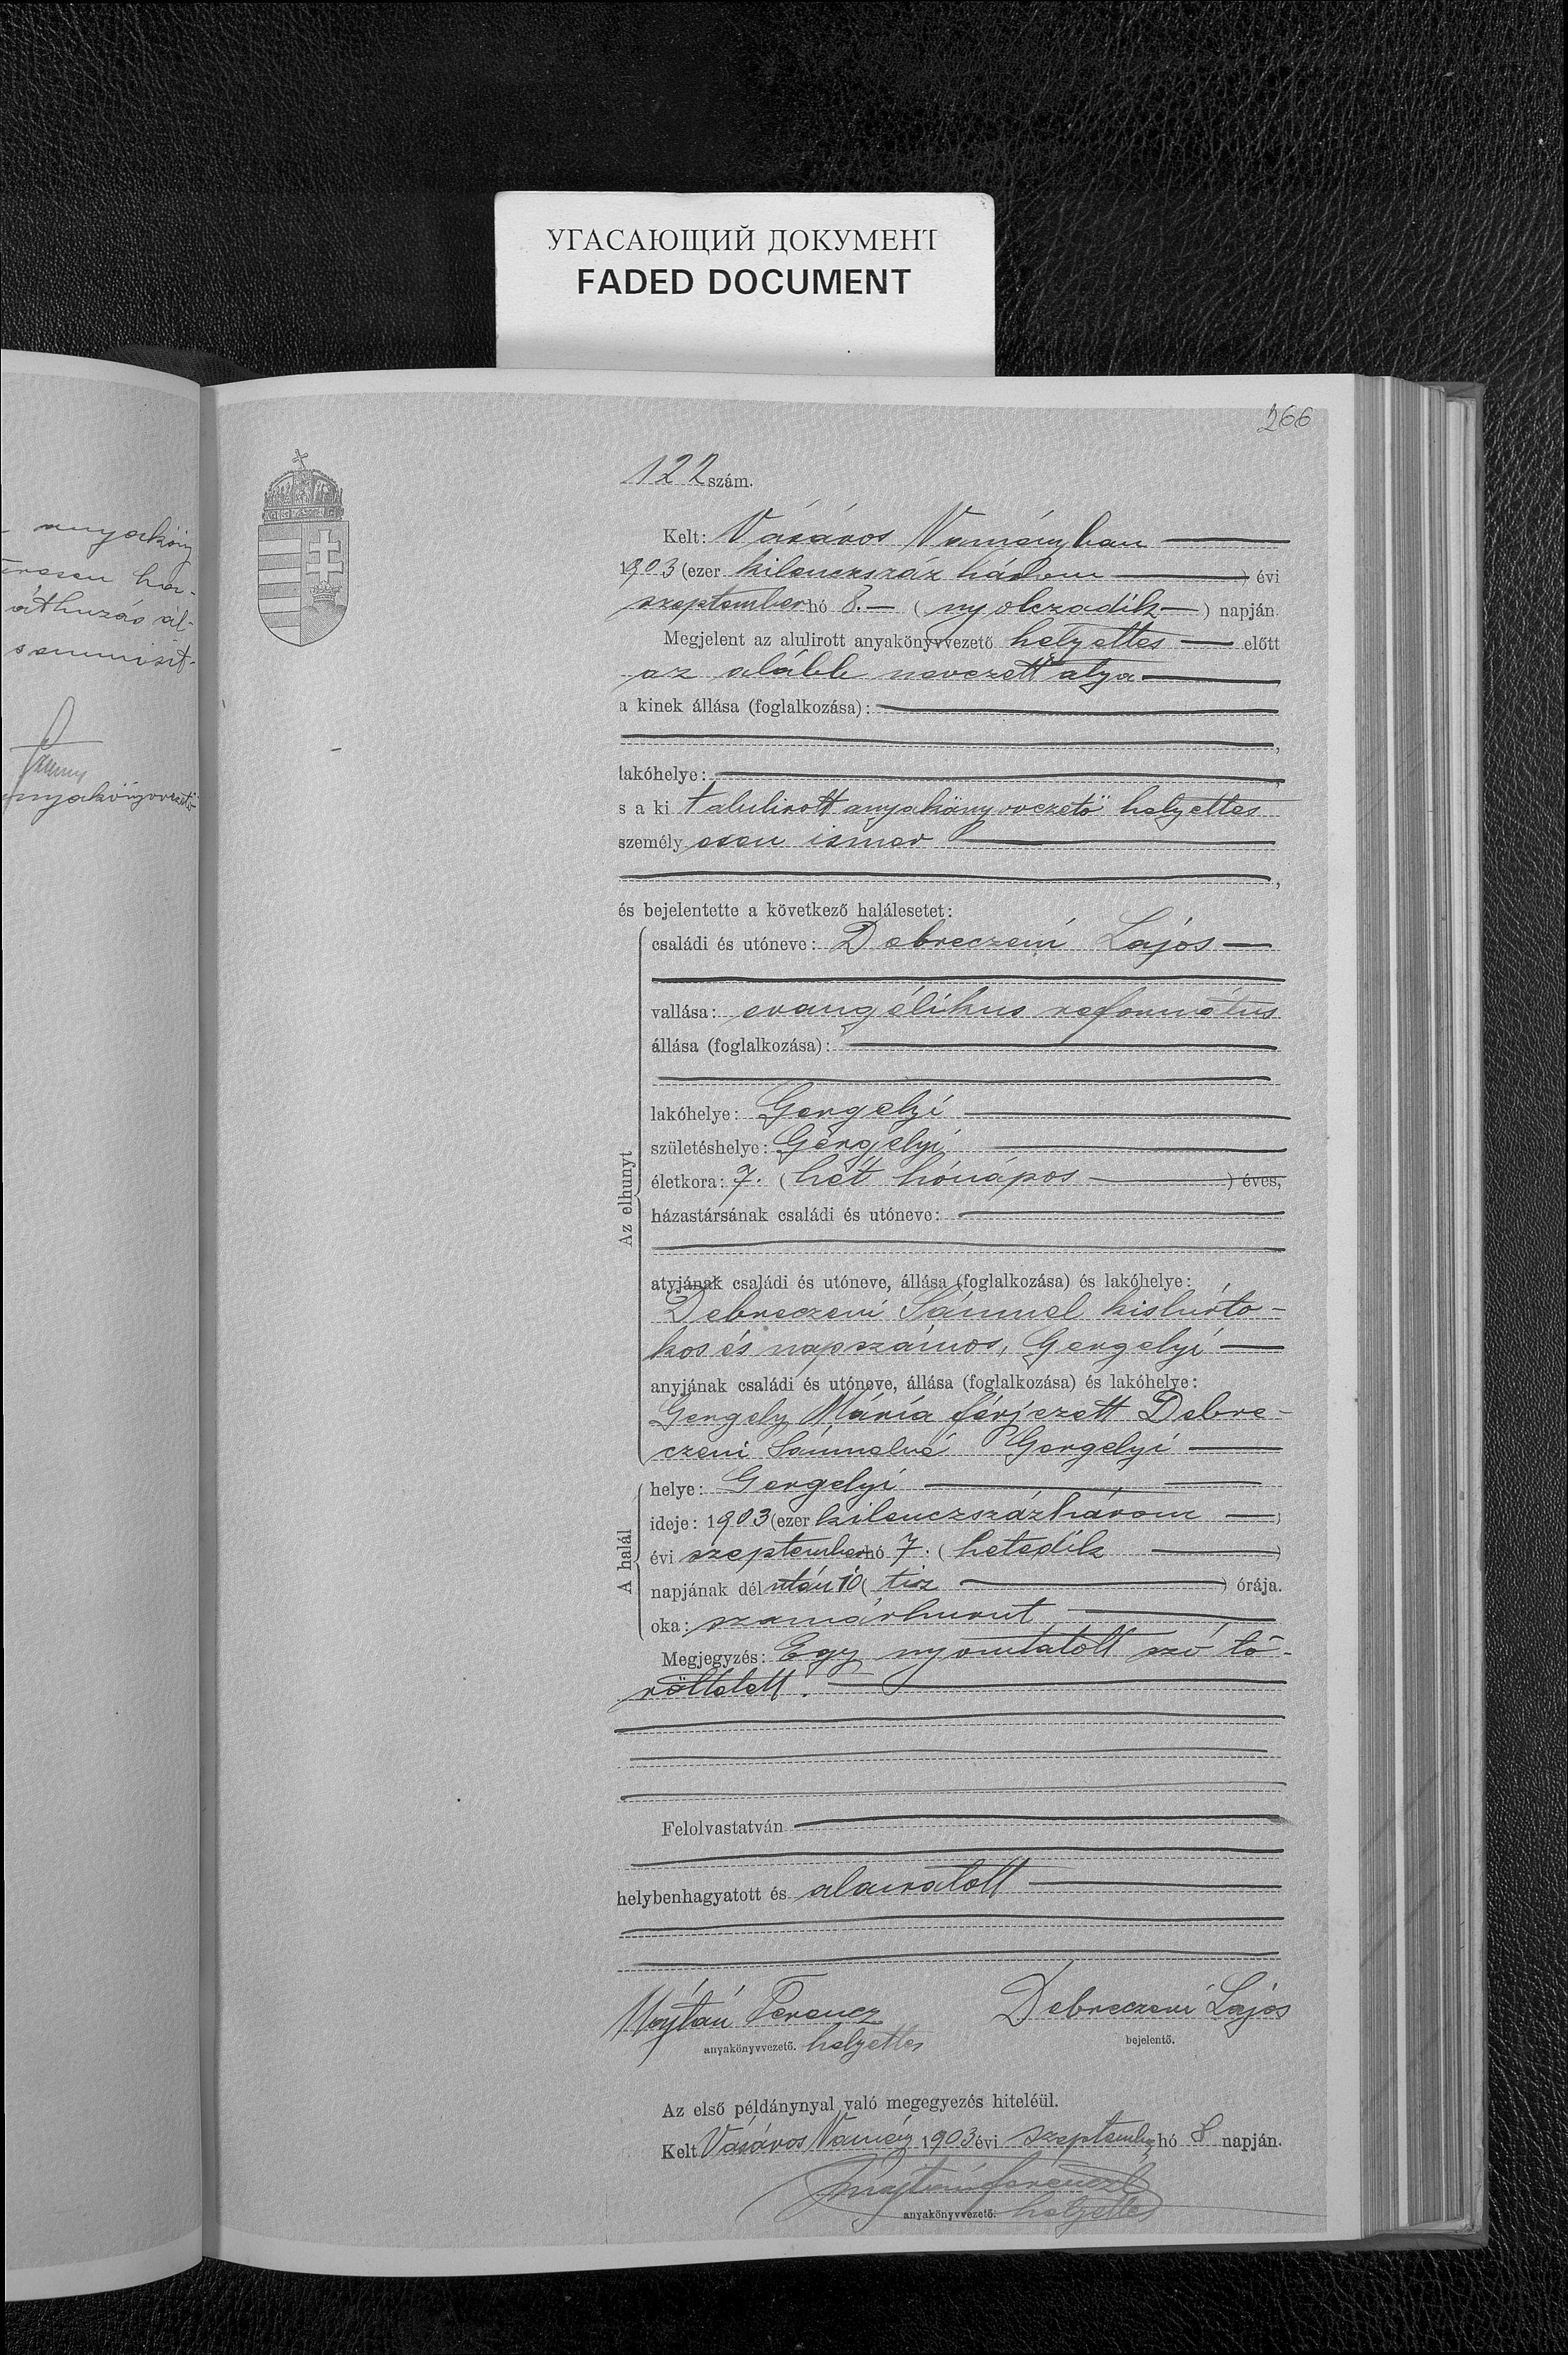 УГАСАЮЩИЙ ДОКУМЕНТ
FADED DOCUMENT
266
122 szám.
Kelt: Vásáros Naményban
1903 (ezer kilenczszáz három) évi
szeptember hó 8. (nyolczadik) napján.
Megjelent az alulirott anyakönyvvezető helyettes előtt
az alább nevezett atya
a kinek állása (foglalkozása):
lakóhelye:
s a ki t alulirott anyakönyvvezető helyettes
személyesen ismer
és bejelentette a következő halálesetet:
Az elhunyt
családi és utóneve: Debreczeni Lajos
vallása: evangélikus református
állása (foglalkozása):
lakóhelye: Gergelyi
születéshelye: Gergelyi
életkora: 7. (hét hónapos) éves,
házastársának családi és utóneve:
atyjának családi és utóneve, állása (foglalkozása) és lakóhelye:
Debreczeni Sámuel kisbirto-
kos és napszámos, Gergelyi
anyjának családi és utóneve, állása (foglalkozása) és lakóhelye:
Gergely Mária férjezett Debre-
czeni Sámuelné Gergelyi
A halál
helye: Gergelyi
ideje: 1903 (ezer kilenczszázhárom)
évi szeptember hó 7. (hetedik)
napjának dél után 10 (tiz) órája.
oka: szamárhurut
Megjegyzés: Egy nyomtatott szó tö-
röltetett.
Felolvastatván
helybenhagyatott és alairatott
Majtán Ferencz
Debreczeni Lajos
anyakönyvvezető. helyettes
bejelentő.
Az első példánynyal való megegyezés hiteléül.
Kelt Vásáros Namény 1903 évi szeptember hó 8 napján.
Majtán Ferencz
anyakönyvvezető. helyettes
anyakönyvvezető